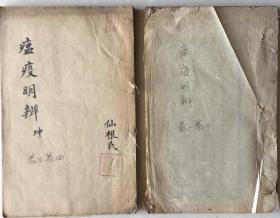 瘟疫明辨 坤
卷三卷四
仙根氏
瘟疫明辨
卷一卷二